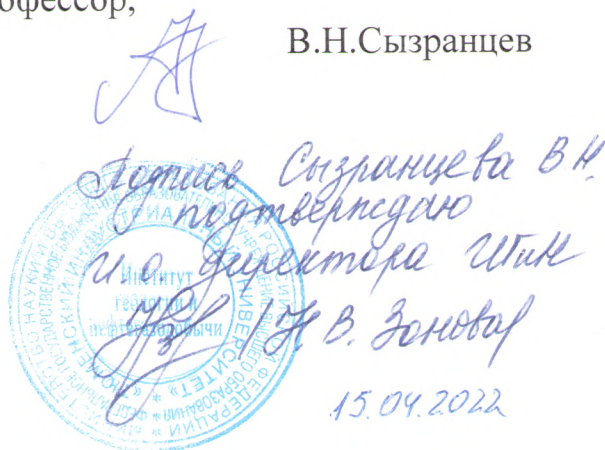 офессор,
В.Н.Сызранцев
Подпись Сызранцева В Н.
подтверждаю
И.о. директора ИГиН
/Н.В. Зонова/
15.04.2022
Институт
геологии и
нефтегазодобычи